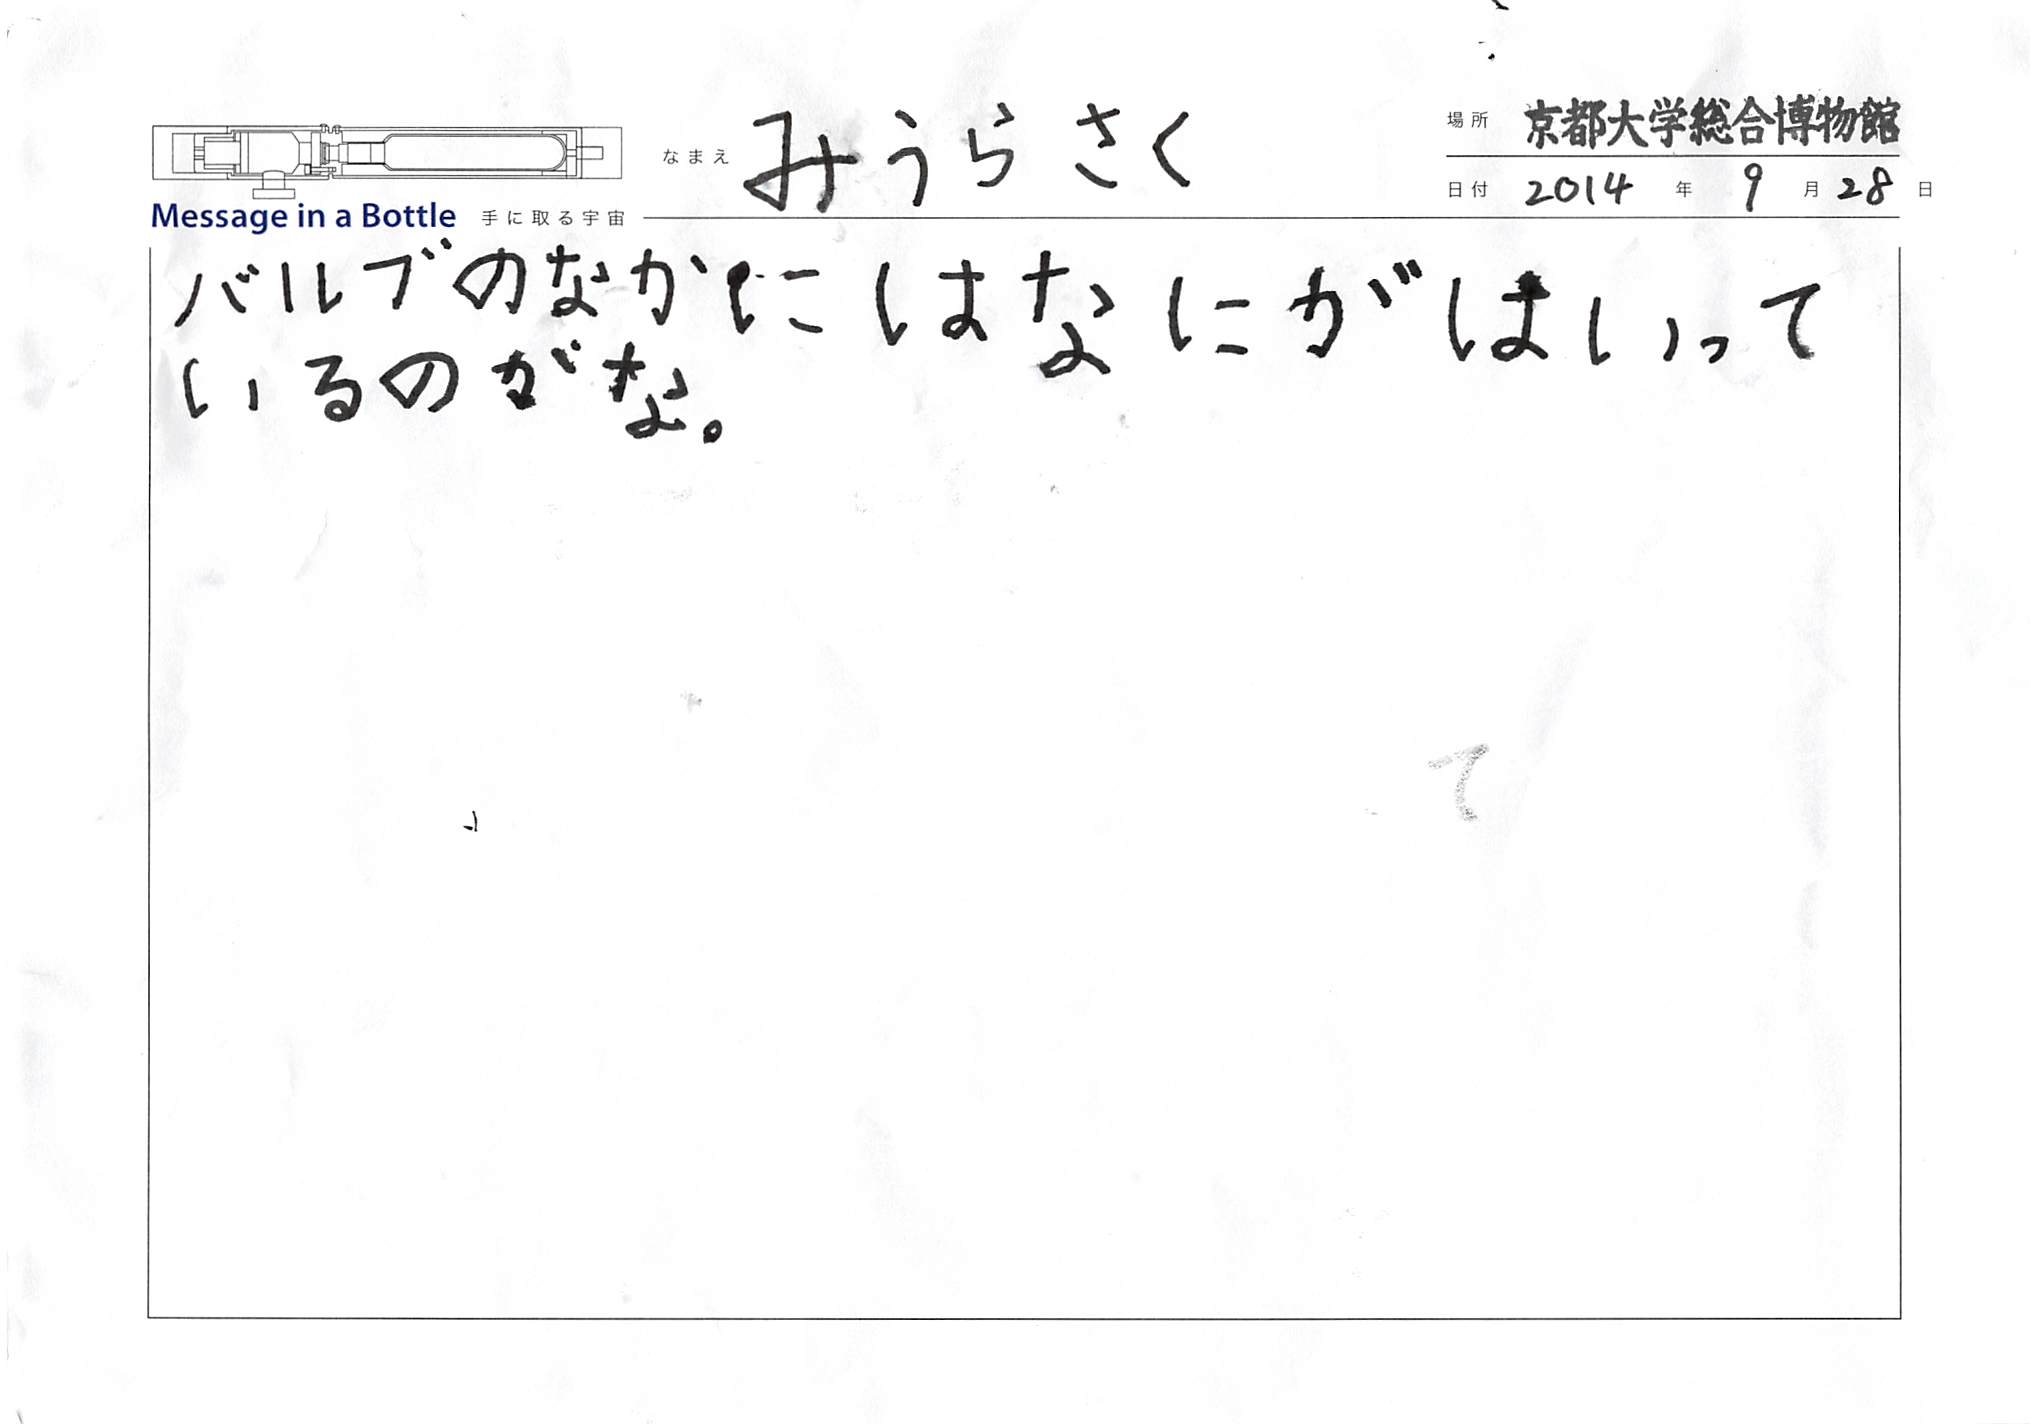 なまえ みうら さく
場所 京都大学総合博物館
日付 2014 年 9 月 28 日
Message in a Bottle 手に取る宇宙
バルブのなかにはなにがはいって
いるのがな。
て